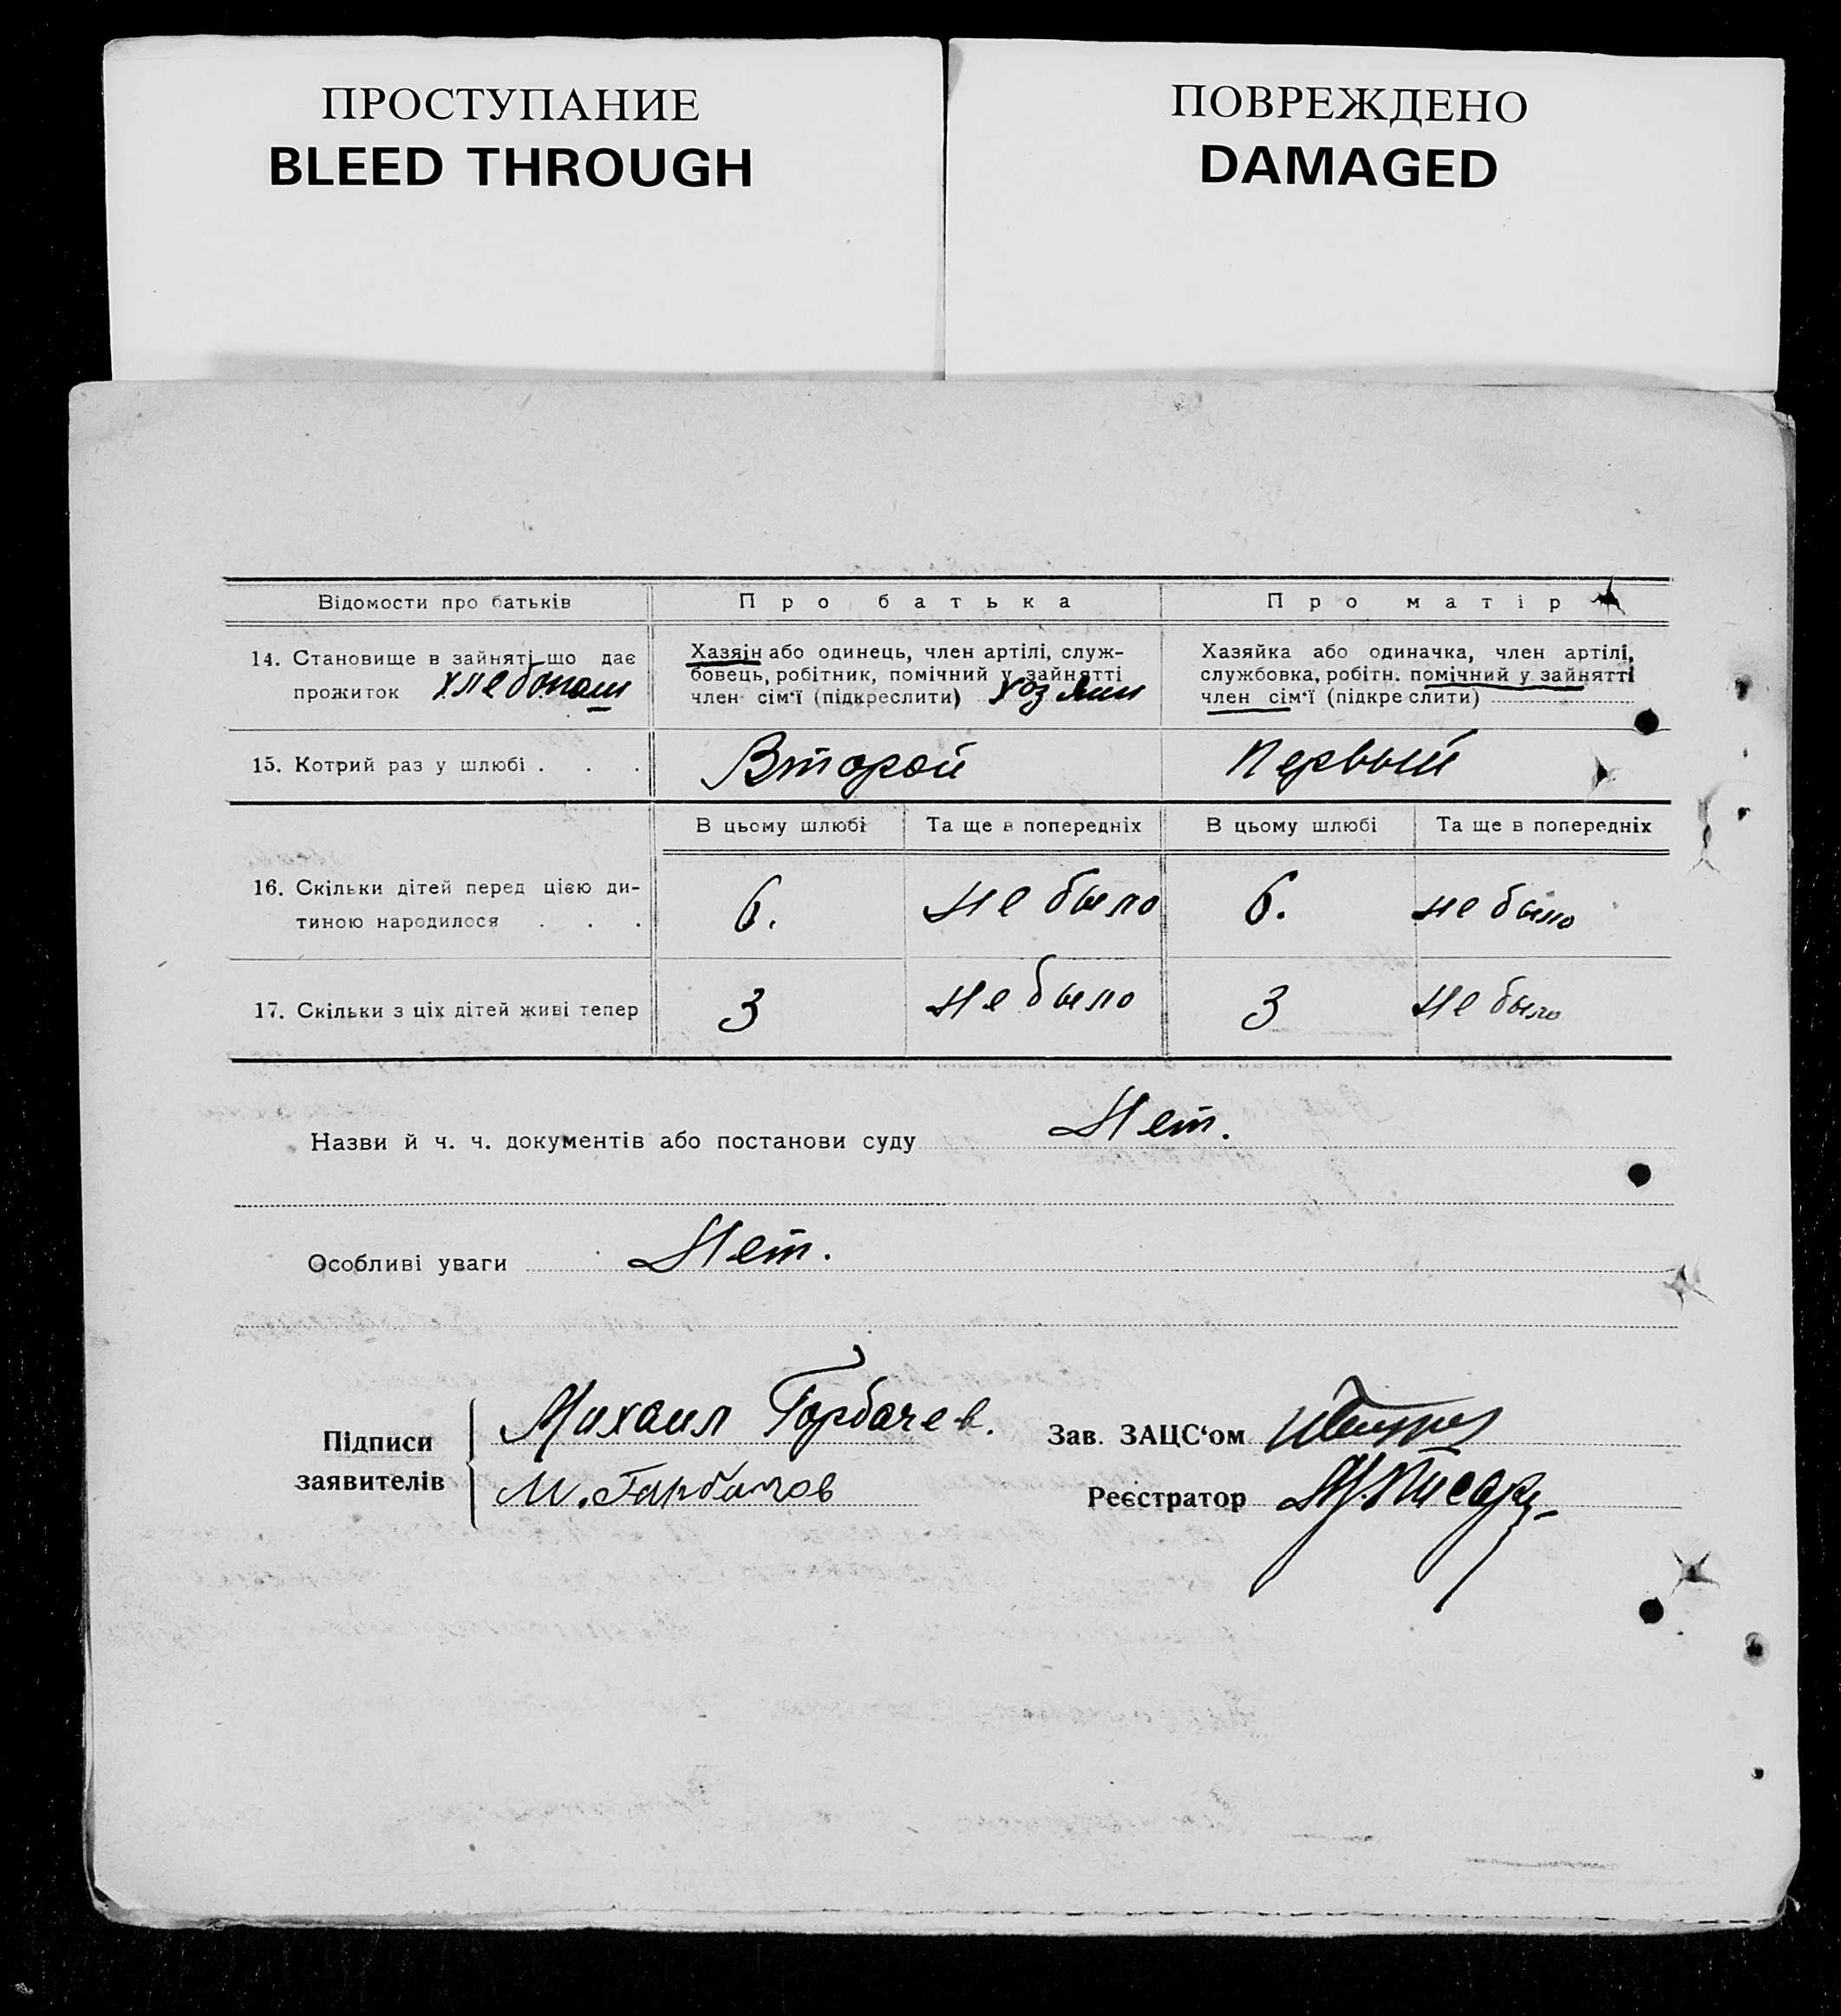 ПРОСТУПАНИЕ
BLEED THROUGH
ПОВРЕЖДЕНО
DAMAGED
Відомости про батьків
Про батька
Про матір
14. Становище в зайняті що дає
прожиток хлебопаш
Хазяін або одинець, член артілі, служ-
бовець, робітник, помічний у зайнятті
член сім'ї (підкреслити) хозяин
Хазяйка або одиначка, член артілі,
службовка, робітн. помічний у зайнятті
член сім'ї (підкреслити)
15. Котрий раз у шлюбі . . .
Второй
Первый
В цьому шлюбі
Та ще в попередніх
В цьому шлюбі
Та ще в попередніх
16. Скільки дітей перед цією ди-
тиною народилося . . .
6.
не было
6.
не было
17. Скільки з ціх дітей живі тепер
3
не было
3
не было
Назви й ч. ч. документів або постанови суду Нет.
Особливі уваги Нет.
Підписи
заявителів
Михаил Горбачев.
М. Горбачов
Зав. ЗАЦС‘ом
Реєстратор